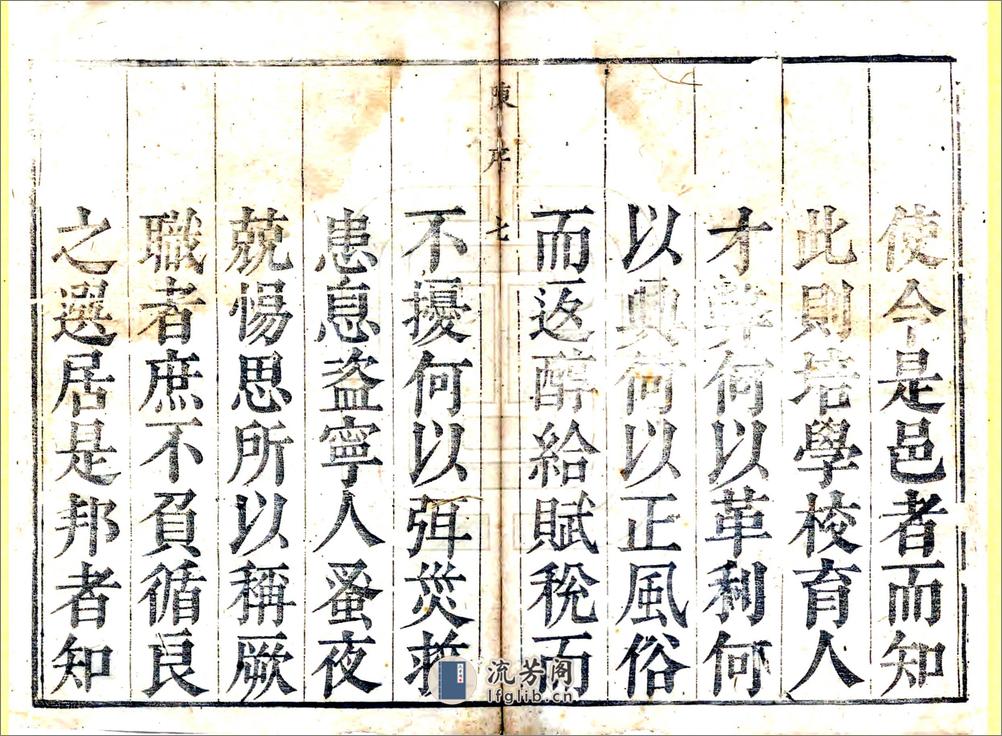 使今是邑者而知
此則培學校育人
才弊何以革利何
以興何以正風俗
而返醇給賦稅而
陳序 七
不擾何以弭災救
患息盜寧人蚤夜
兢惕思所以稱厥
職者庶不負循良
之選居是邦者知
流芳阁
lfglib.cn